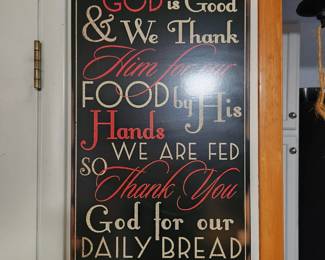 GOD is Good
& We Thank
Him for our
FOOD by His
Hands
WE ARE FED
so Thank You
God for our
DAILY BREAD